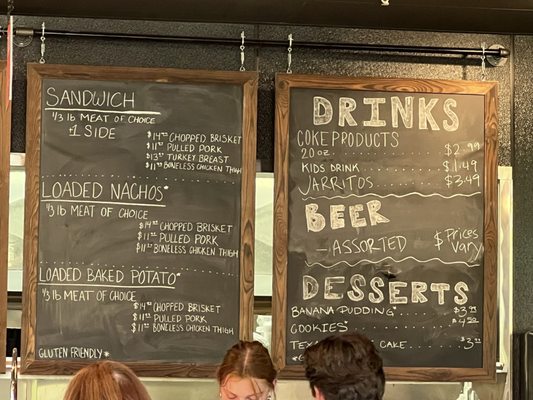 SANDWICH
1/3 lb MEAT OF CHOICE
1 SIDE
CHOPPED BRISKET
PULLED PORK
TURKEY BREAST
BONELESS CHICKEN THIGH
LOADED NACHOS*
1/3 lb MEAT OF CHOICE
CHOPPED BRISKET
PULLED PORK
BONELESS CHICKEN THIGH
LOADED BAKED POTATO*
1/3 lb MEAT OF CHOICE
CHOPPED BRISKET
PULLED PORK
BONELESS CHICKEN THIGH
GLUTEN FRIENDLY*
DRINKS
COKE PRODUCTS
20oz $2.99
KIDS DRINK $1.49
JARRITOS $3.49
BEER
-ASSORTED $ Prices Vary
DESSERTS
BANANA PUDDING*
COOKIES
CAKE